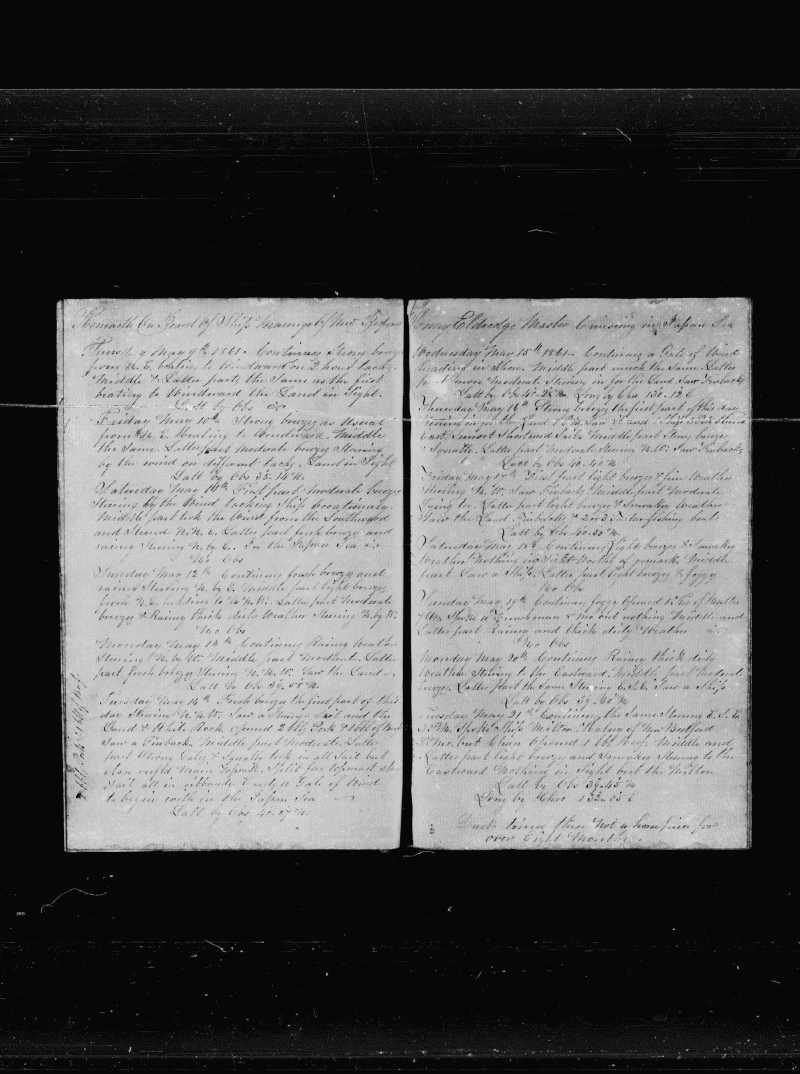 Remarks On Board Of Ship Marengo Of New Bedford
Thursday May 9th 1861. Continues Strong breezes
from N. E. beating to windward on 2 hour tacks
Middle & Latter parts the Same as the first
beating to Windward the Land in Sight.
Latt by Obs
Friday May 10th Strong breezes as Usual
from N. E. beating to Windward. Middle
the Same. Latter part Moderate breezes Steering
by the wind on different tacks. Land in Sight
Latt by Obs 35-14 N.
Saturday May 11th First part Moderate breezes
Steering by the Wind tacking Ship occationaly.
Middle part took the Wind from the Southward
and Steered N.N.E. Latter part fresh breezes and
rainy Steering N. by E. In the Japan Sea
No Obs
Sunday May 12th Continues fresh breezes and
rainy Steering N. by E. Middle part light breezes
from N. E. Latter part Moderate
breezes & Rainy thick dirty Weather Steering N. by W.
No Obs
Monday May 13th Continues Rainy Weather
Steering N. by W. Middle part Moderate. Latter
part fresh breezes Steering N. N. W. Saw the Land
Latt by Obs 39-55 N.
Tuesday May 14th Fresh breezes the first part of this
day Steering N.N.W. Saw a Strange Sail and the
Land & White Rock opened 2 bbls Pork & 1 bbl of Beef
Saw a Finback. Middle part Moderate. Latter
part Strong Gales & Squally took in all Sail but
close reefed Main Topsail. Split for topmast stay
Sail all in ribbands Early a Gale of Wind
to begin with in the Japan Sea
Latt by Obs 40-07 N.
2 bbls Pork & 1 bbl of Beef.
Henry Eldredge Master Cruising in Japan Sea
Wednesday May 15th 1861. Continues a Gale of Wind
heading in Shore. Middle part much the Same. Latter
part more Moderate Steering in for the Land Saw Finbacks
Latt by Obs 40-25 N. Long by Chro 130-12 E
Thursday May 16th Strong breezes the first part of this day
Steering in for the Land
East. Sunset Shortened Sail. Middle part Strong breezes
& Squally. Latter part Moderate Steering N.W. Saw Finbacks
Latt by Obs 40-40 N
Friday May 17th First part light breezes & fine Weather
Steering N. W. Saw Finbacks Middle part Moderate
Latter part light breezes & Smoaky Weather
Saw the Land Finbacks & 2 or 3 Fishing boats
Latt by Obs 40-20 N.
Saturday May 18th Continues light breezes & Smoaky
Weather Nothing in Sight Worthy of remark. Middle
part Saw a Ship. Latter part light breezes & foggy
No Obs
Sunday May 19th Continues foggy Opened 1 Keg of Butter
Spoke a Frenchman & no oil nothing Middle and
Latter part Rainey and thick dirty Weather
No Obs
Monday May 20th Continues Rainy thick dirty
Weather Steering to the Eastward. Middle part Moderate
breezes. Latter part the Same Steering E.S.E. Saw a Ship
Latt by Obs 39-40 N
Tuesday May 21st Continues the Same Steering E. S. E.
P.M. Spoke Ship Milton of New Bedford
opened 1 bbl Beef. Middle and
Latter part light breezes and Smoaky Steering to the
Eastward Nothing in Sight but the Milton
Latt by Obs 39-45 N
Long by Chro 132-05 E
Dark times these Not a horn for
over Eight Months